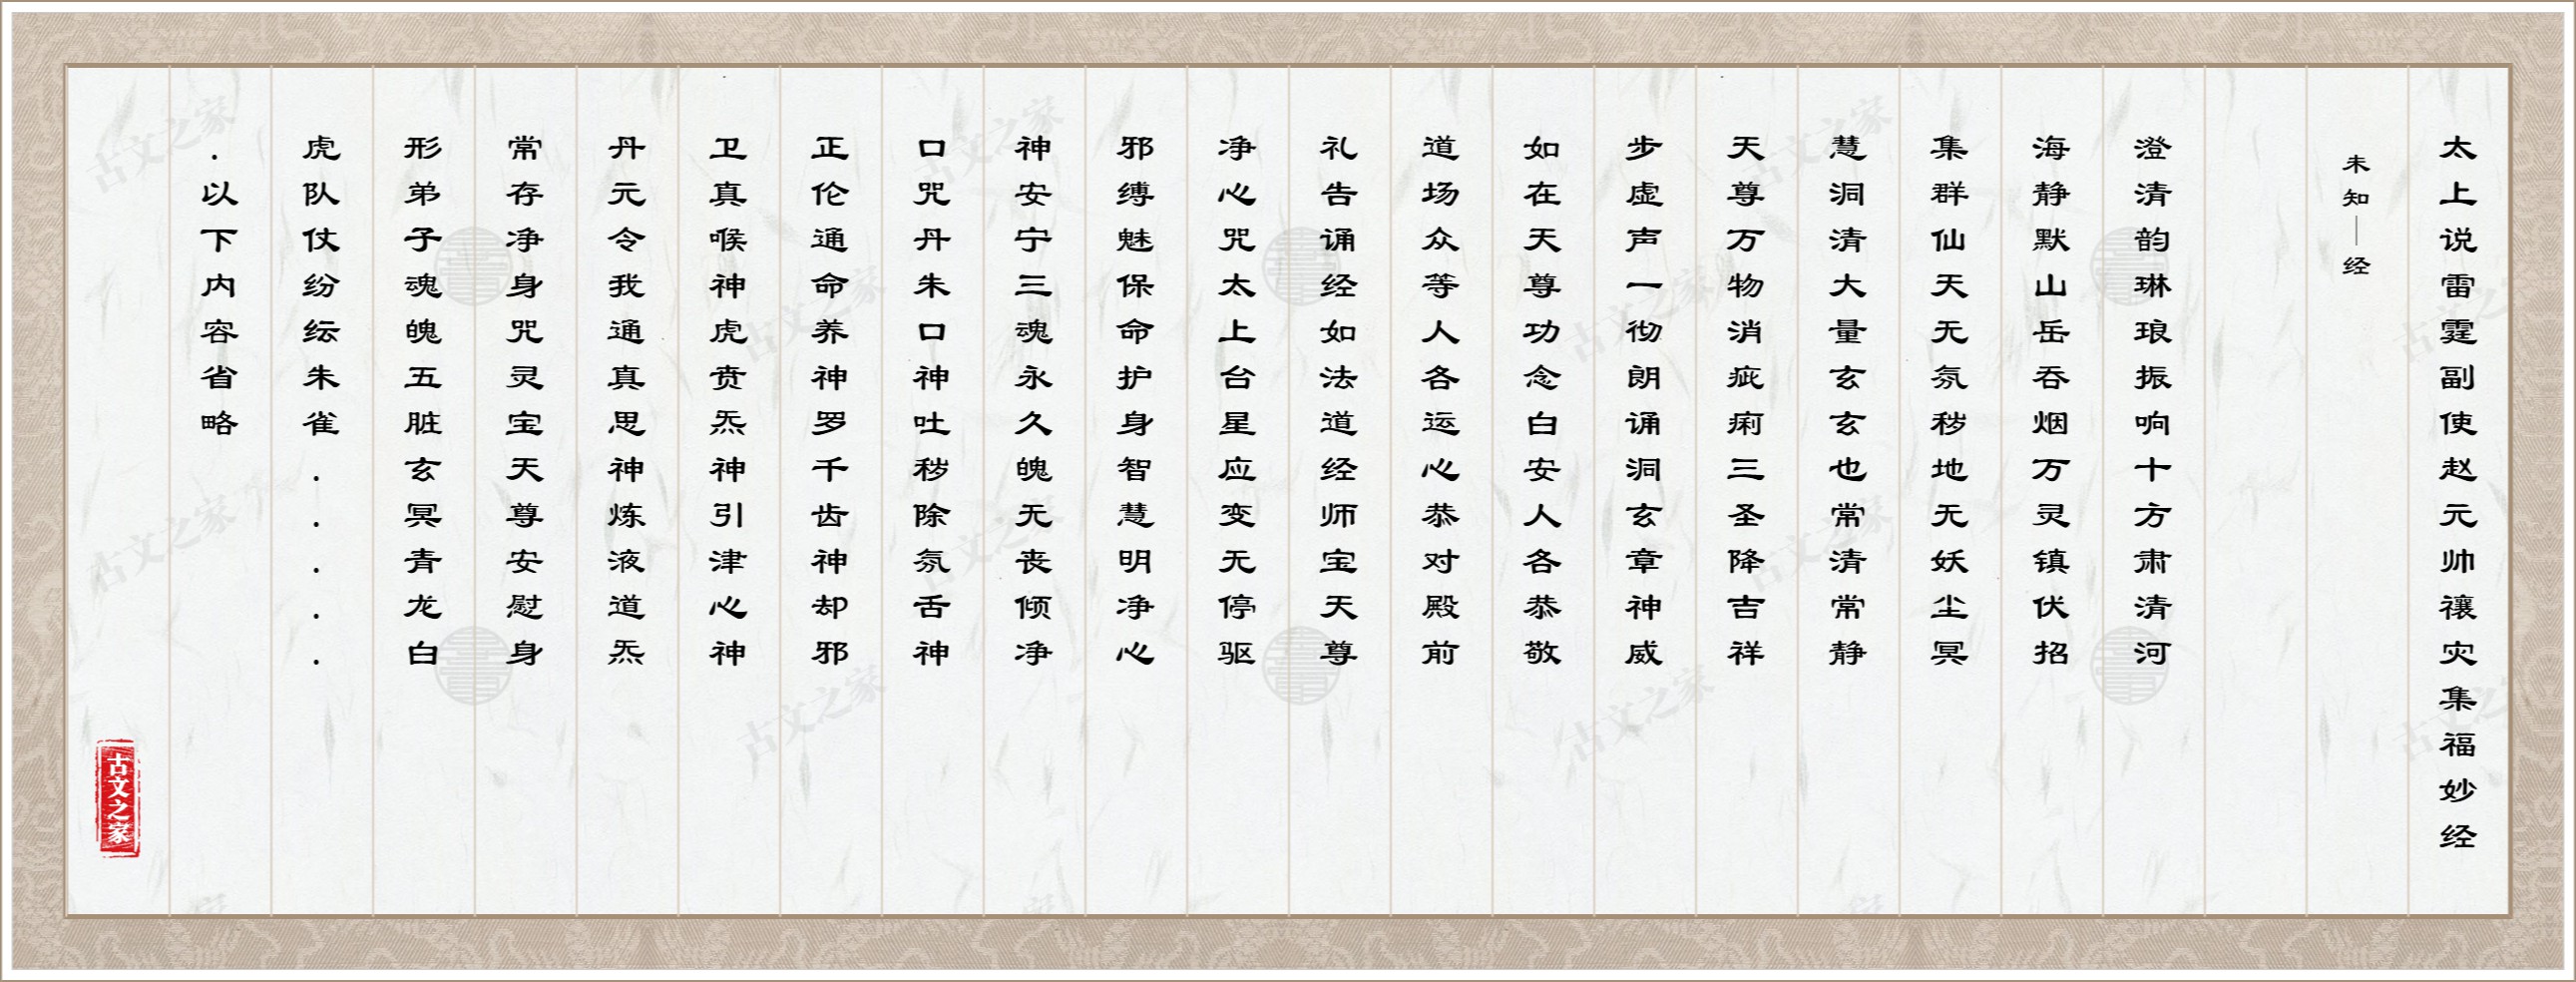 太上说雷霆副使赵元帅禳灾集福妙经
未知｜经
澄清韵琳琅振响十方肃清河
海静默山岳吞烟万灵镇伏招
集群仙天无氛秽地无妖尘冥
慧洞清大量玄玄也常清常静
天尊万物消疵痢三圣降吉祥
步虚声一彻朗诵洞玄章神威
如在天尊功念白安人各恭敬
道场众等人各运心恭对殿前
礼告诵经如法道经师宝天尊
净心咒太上台星应变无停驱
邪缚魅保命护身智慧明净心
神安宁三魂永久魄无丧倾净
口咒丹朱口神吐秽除氛舌神
正伦通命养神罗千齿神却邪
卫真喉神虎贲炁神引津心神
丹元令我通真思神炼液道炁
常存净身咒灵宝天尊安慰身
形弟子魂魄五脏玄冥青龙白
虎队仗纷纭朱雀.....
.以下内容省略
古文之家